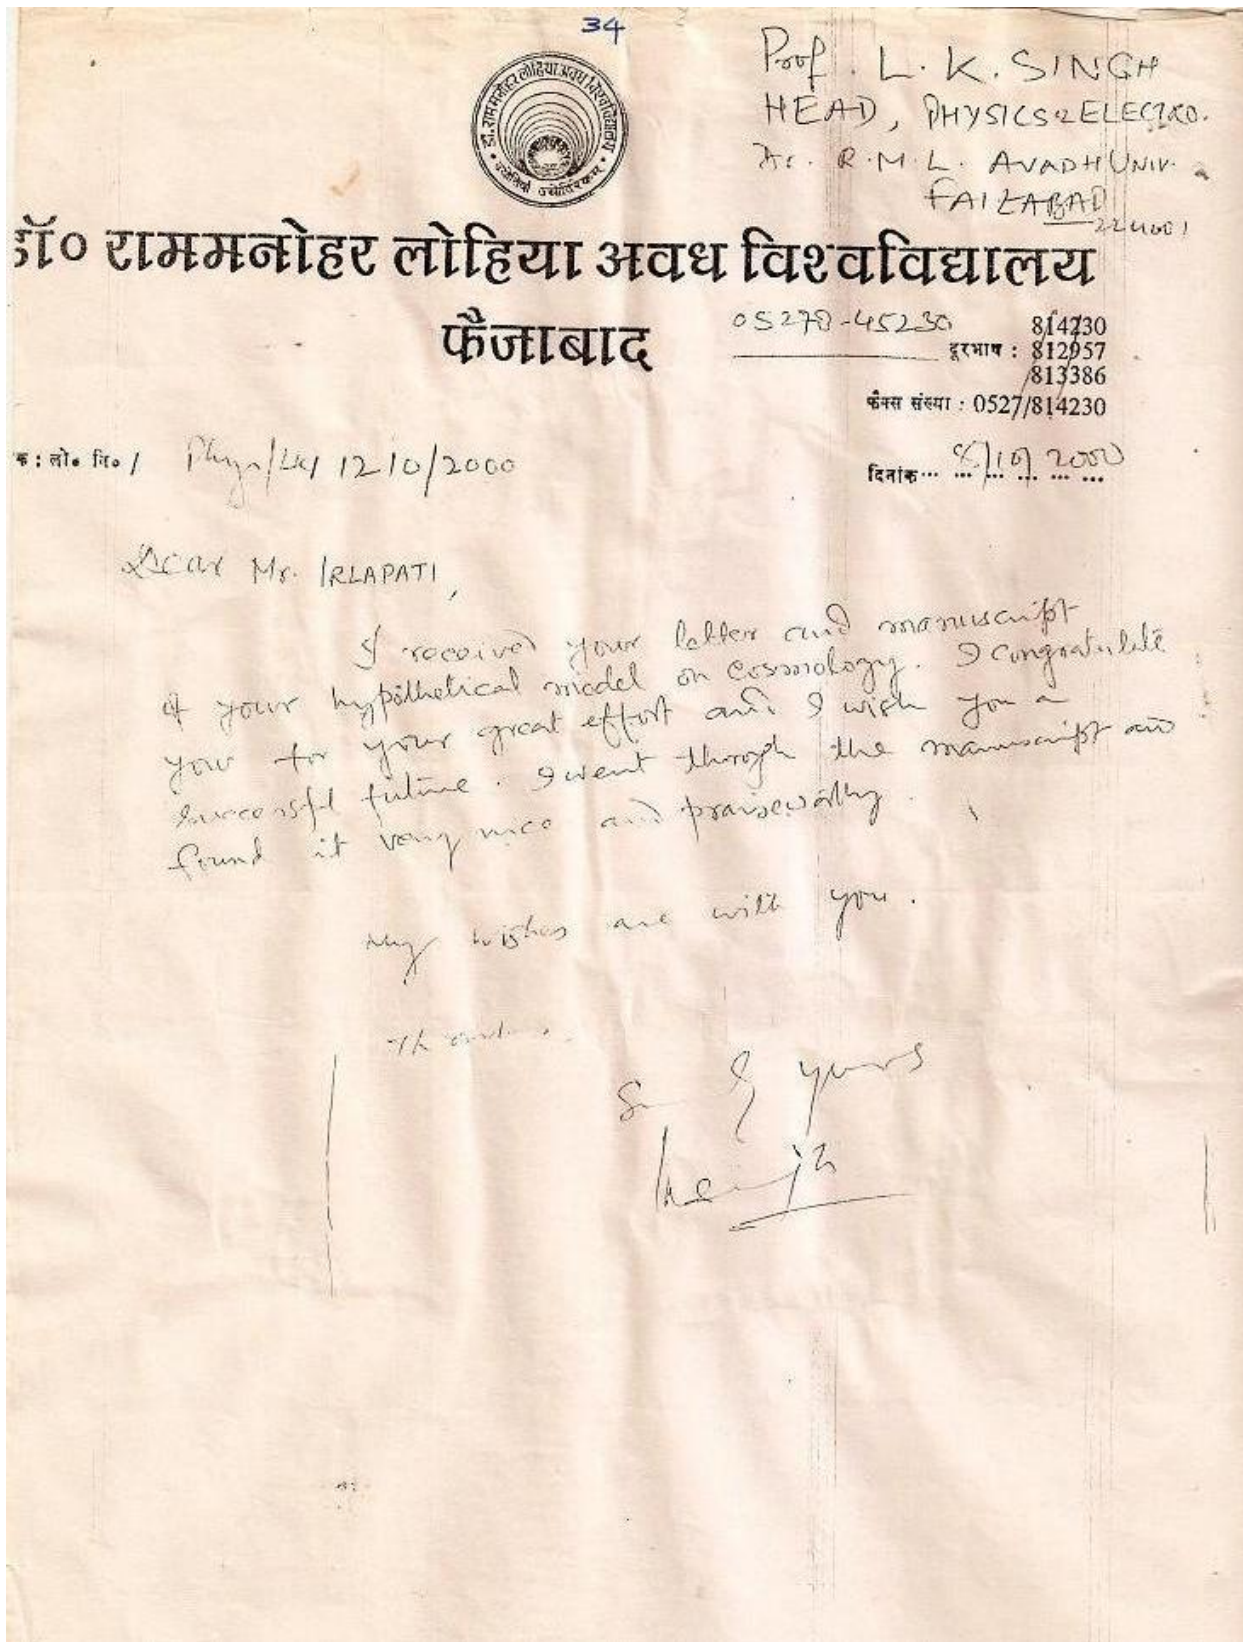 34
Prof. L. K. SINGH
HEAD, PHYSICS & ELECTRO.
Dr. R. M. L. AVADH UNIV.
FAIZABAD
224001
डा. राममनोहर लोहिया अवध विश्वविद्यालय
डॉ० राममनोहर लोहिया अवध विश्वविद्यालय
फैजाबाद
05278-45230
814230
दूरभाष : 812957
813386
फैक्स संख्या : 0527/814230
क : लो० नि० / 1210/2000
दिनांक 10/2000
Dear Mr. IRLAPATI,
I received your letter and manuscript
of your hypothetical model on cosmology. I congratulate
you for your great effort and I wish you a
successful future. I went through the manuscript and
found it very nice and praiseworthy.
My wishes are with you.
yours